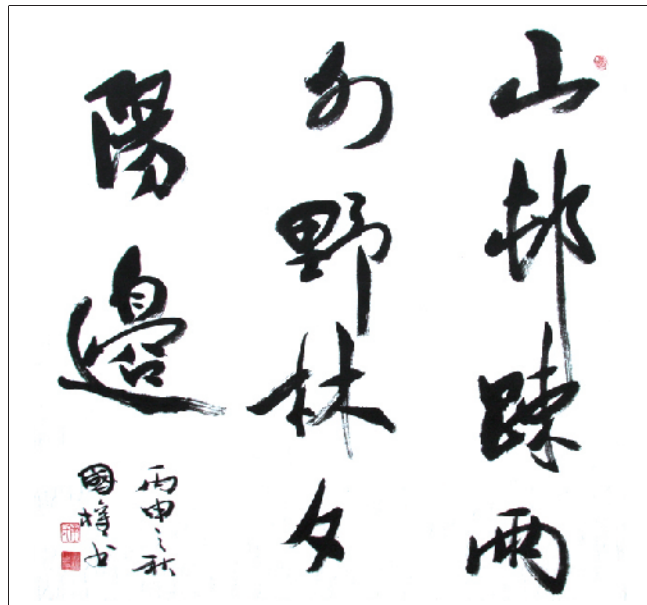 山邨踈雨
外野林夕
陽邊
丙申之秋
國權書